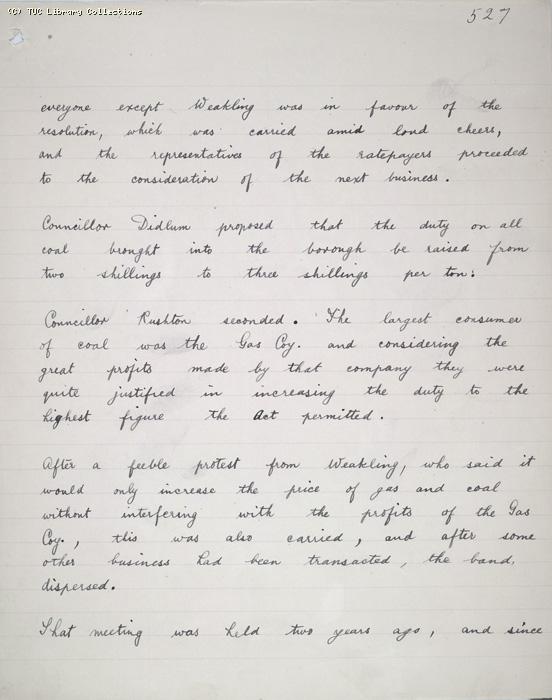 (C) TUC Library Collections
527
everyone except Weakling was in favour of the
resolution, which was carried amid loud cheers,
and the representatives of the ratepayers proceeded
to the consideration of the next business.
Councillor Didlum proposed that the duty on all
coal brought into the borough be raised from
two shillings to three shillings per ton.
Councillor Rushton seconded. The largest consumer
of coal was the Gas Coy. and considering the
great profits made by that company they were
quite justified in increasing the duty to the
highest figure the Act permitted.
After a feeble protest from Weakling, who said it
would only increase the price of gas and coal
without interfering with the profits of the Gas
Coy., this was also carried, and after some
other business had been transacted, the band
dispersed.
That meeting was held two years ago, and since